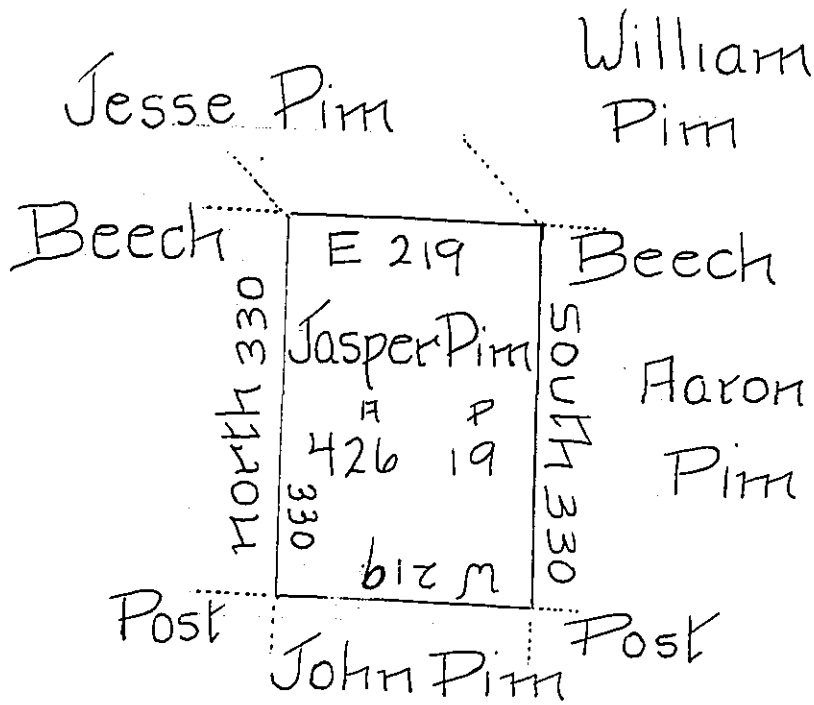 William
Pim
Jesse Pim
Beech
E 219
Beech
North 330
Jasper Pim
South 330
Aaron
Pim
A P
426 19
330
W 219
Post
Post
John Pim